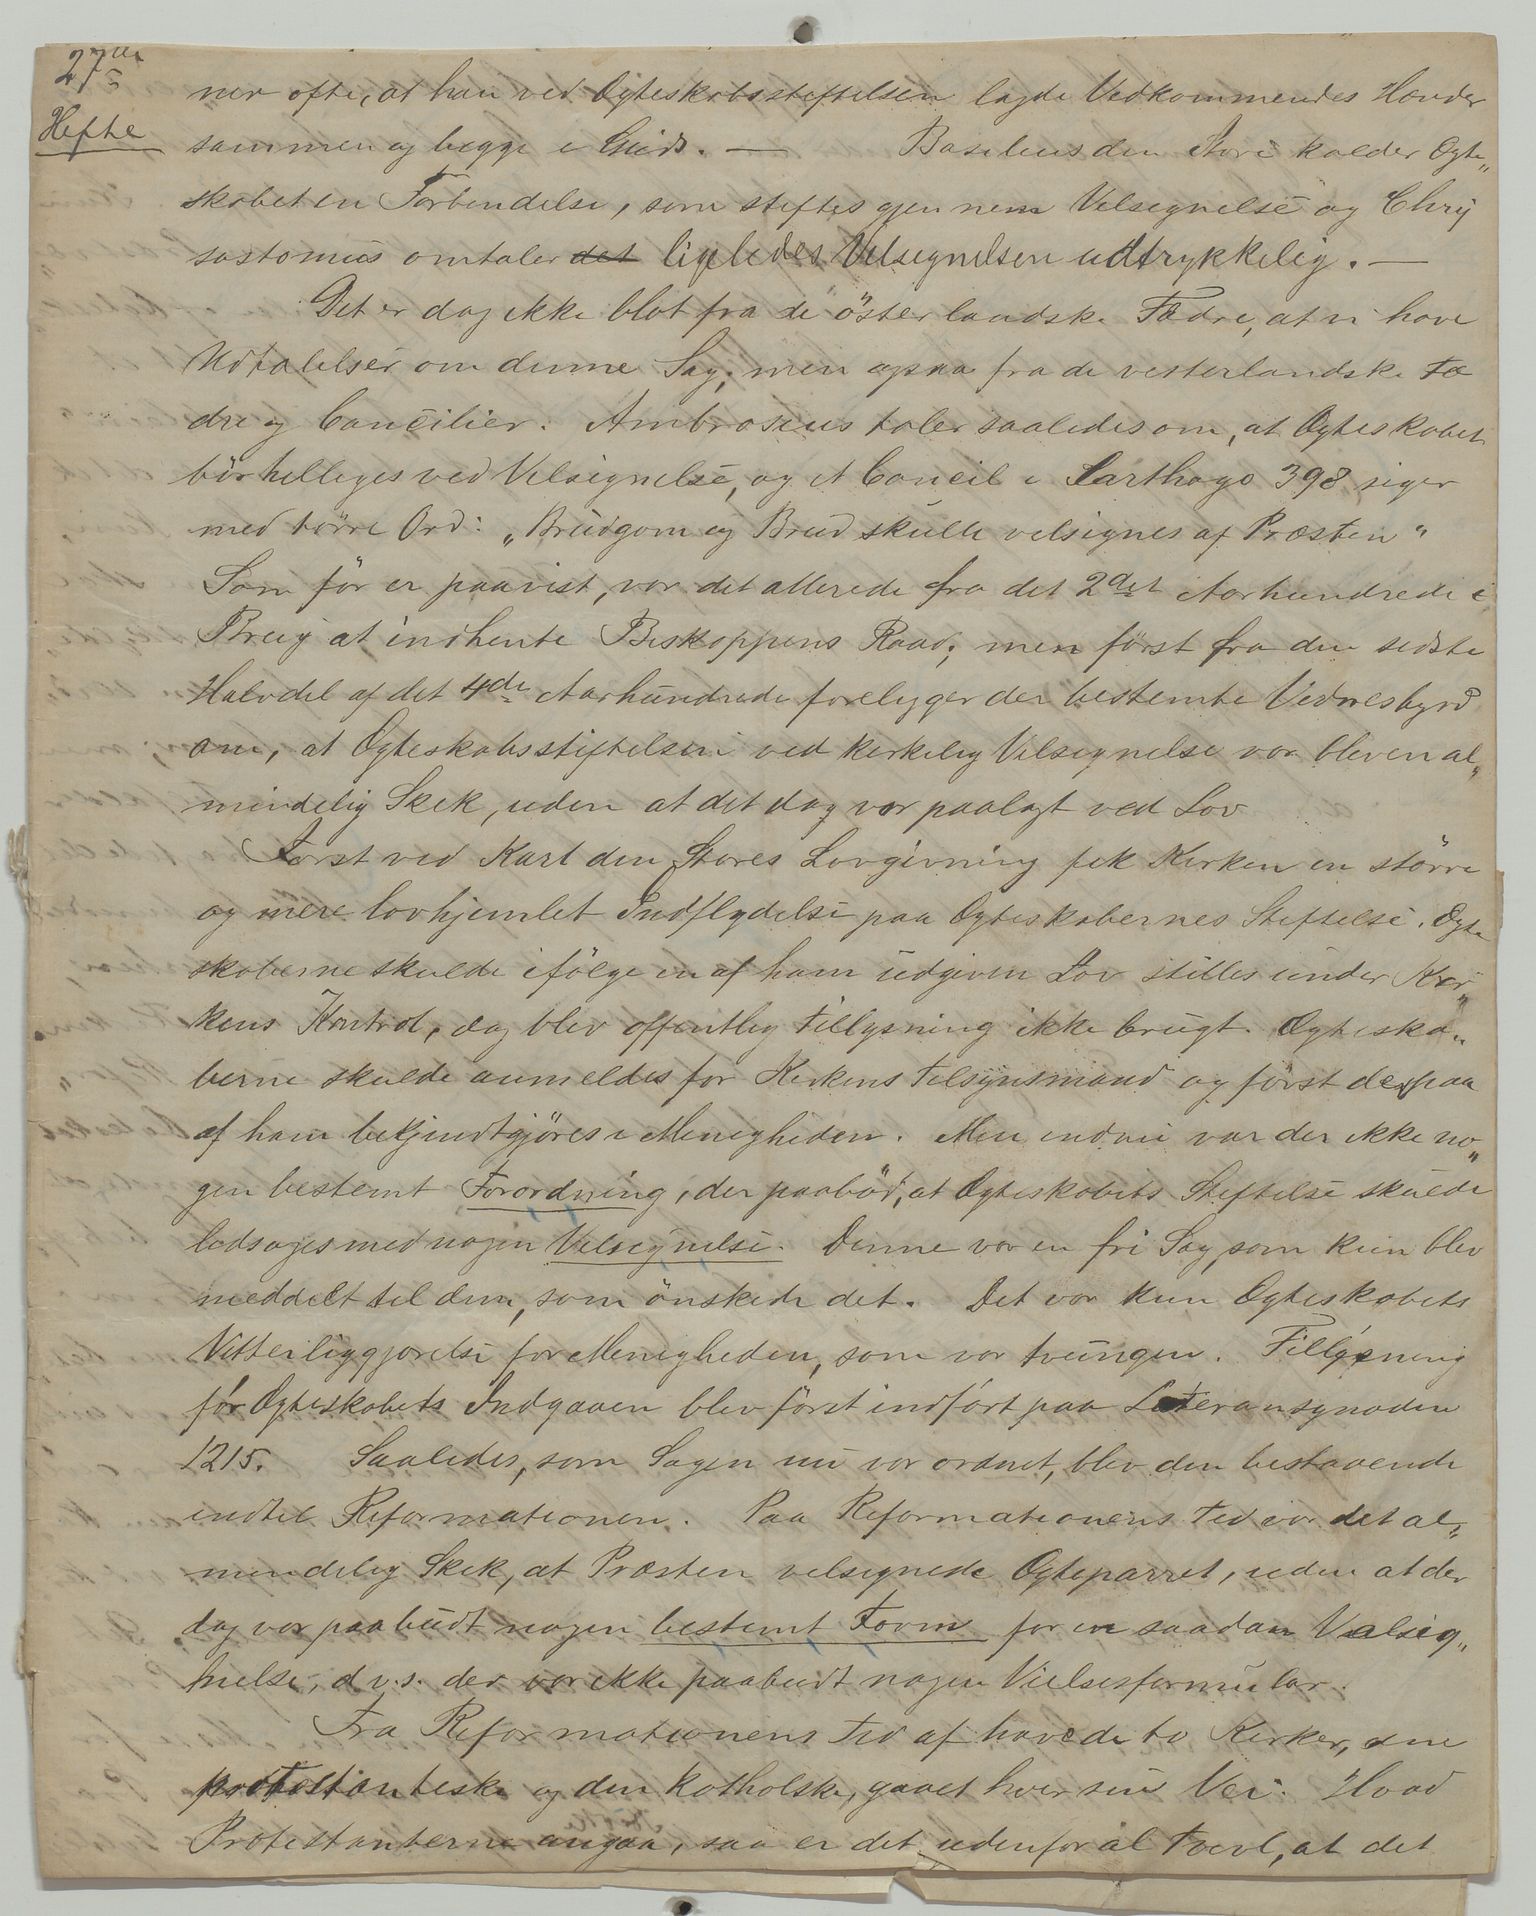 27de
Hefte
ner ofte, at han ved Ogteskabsstiftelsen lagde Vedkommendes Hænder
sammen og begge i Guds. — Basilius den Store kalder Ogte„
skabet en Forbindelse, som stiftes gjennem Velsignelse og Chry
sostomus omtaler det ligeledes Velsignelsen udtrykkelig. —
Det er dog ikke blot fra de österlandske Fædre, at vi have
Udtalelser om denne Sag; men ogsaa fra de vesterlandske Fæ
dre og Concilier. Ambrosius taler saaledes om, at Ogteskabet
bör helliges ved Velsignelse, og et Concil i Carthago 398 siger
med törre Ord: „Brudgom og Brud skulle velsignes af Præsten“
Som för er paavist, var det allerede fra det 2det Aarhundrede i
Brug at indhente Biskoppens Raad; men först fra den sidste
Halvdel af det 4de Aarhundrede foreligger der bestemte Vidnesbyrd
om, at Ogteskabsstiftelsen ved kirkelig Velsignelse var bleven al„
mindelig Skik, uden at det dog var paalagt ved Lov
Först ved Karl den Stores Lovgivning fik Kirken en större
og mere lovhjemlet Indflydelse paa Ogteskabernes Stiftelse. Ogte
skaberne skulde ifölge en af ham udgiven Lov stilles under Kir„
kens Kontrol, dog blev offentlig Tillysning ikke brugt. Ogteska„
berne skulde anmeldes for Kirkens Tilsynsmand og först derpaa
af ham bekjendtgjöres i Menigheden. Men endnu var der ikke no„
gen bestemt Forordning, der paaböd, at Ogteskabets Stiftelse skulde
ledsages med nogen Velsignelse. Denne var en fri Sag, som kun blev
meddelt til dem, som önskede det. Det var kun Ogteskabets
Vitterliggjorelse for Menigheden, som var tvungen. Tillysning
för Ogteskabets Indgaaen blev först indfört paa Lateransynoden
1215. Saaledes, som Sagen nu var ordnet, blev den bestaaende
indtil Reformationen. Paa Reformationens Tid var det al„
mindelig Skik, at Præsten velsignede Ogteparret, uden at der
dog var paabudt nogen bestemt Form for en saadan Velsig„
nelse, d.v.s. der var ikke paabudt nogen Vielsesformular.
Fra Reformationens Tid af havde to Kirker, den
protestantiske og den katholske, gaaet hver sin Vei. Hvad
Protestanterne angaa, saa er det udenfor al Tvivl, at det